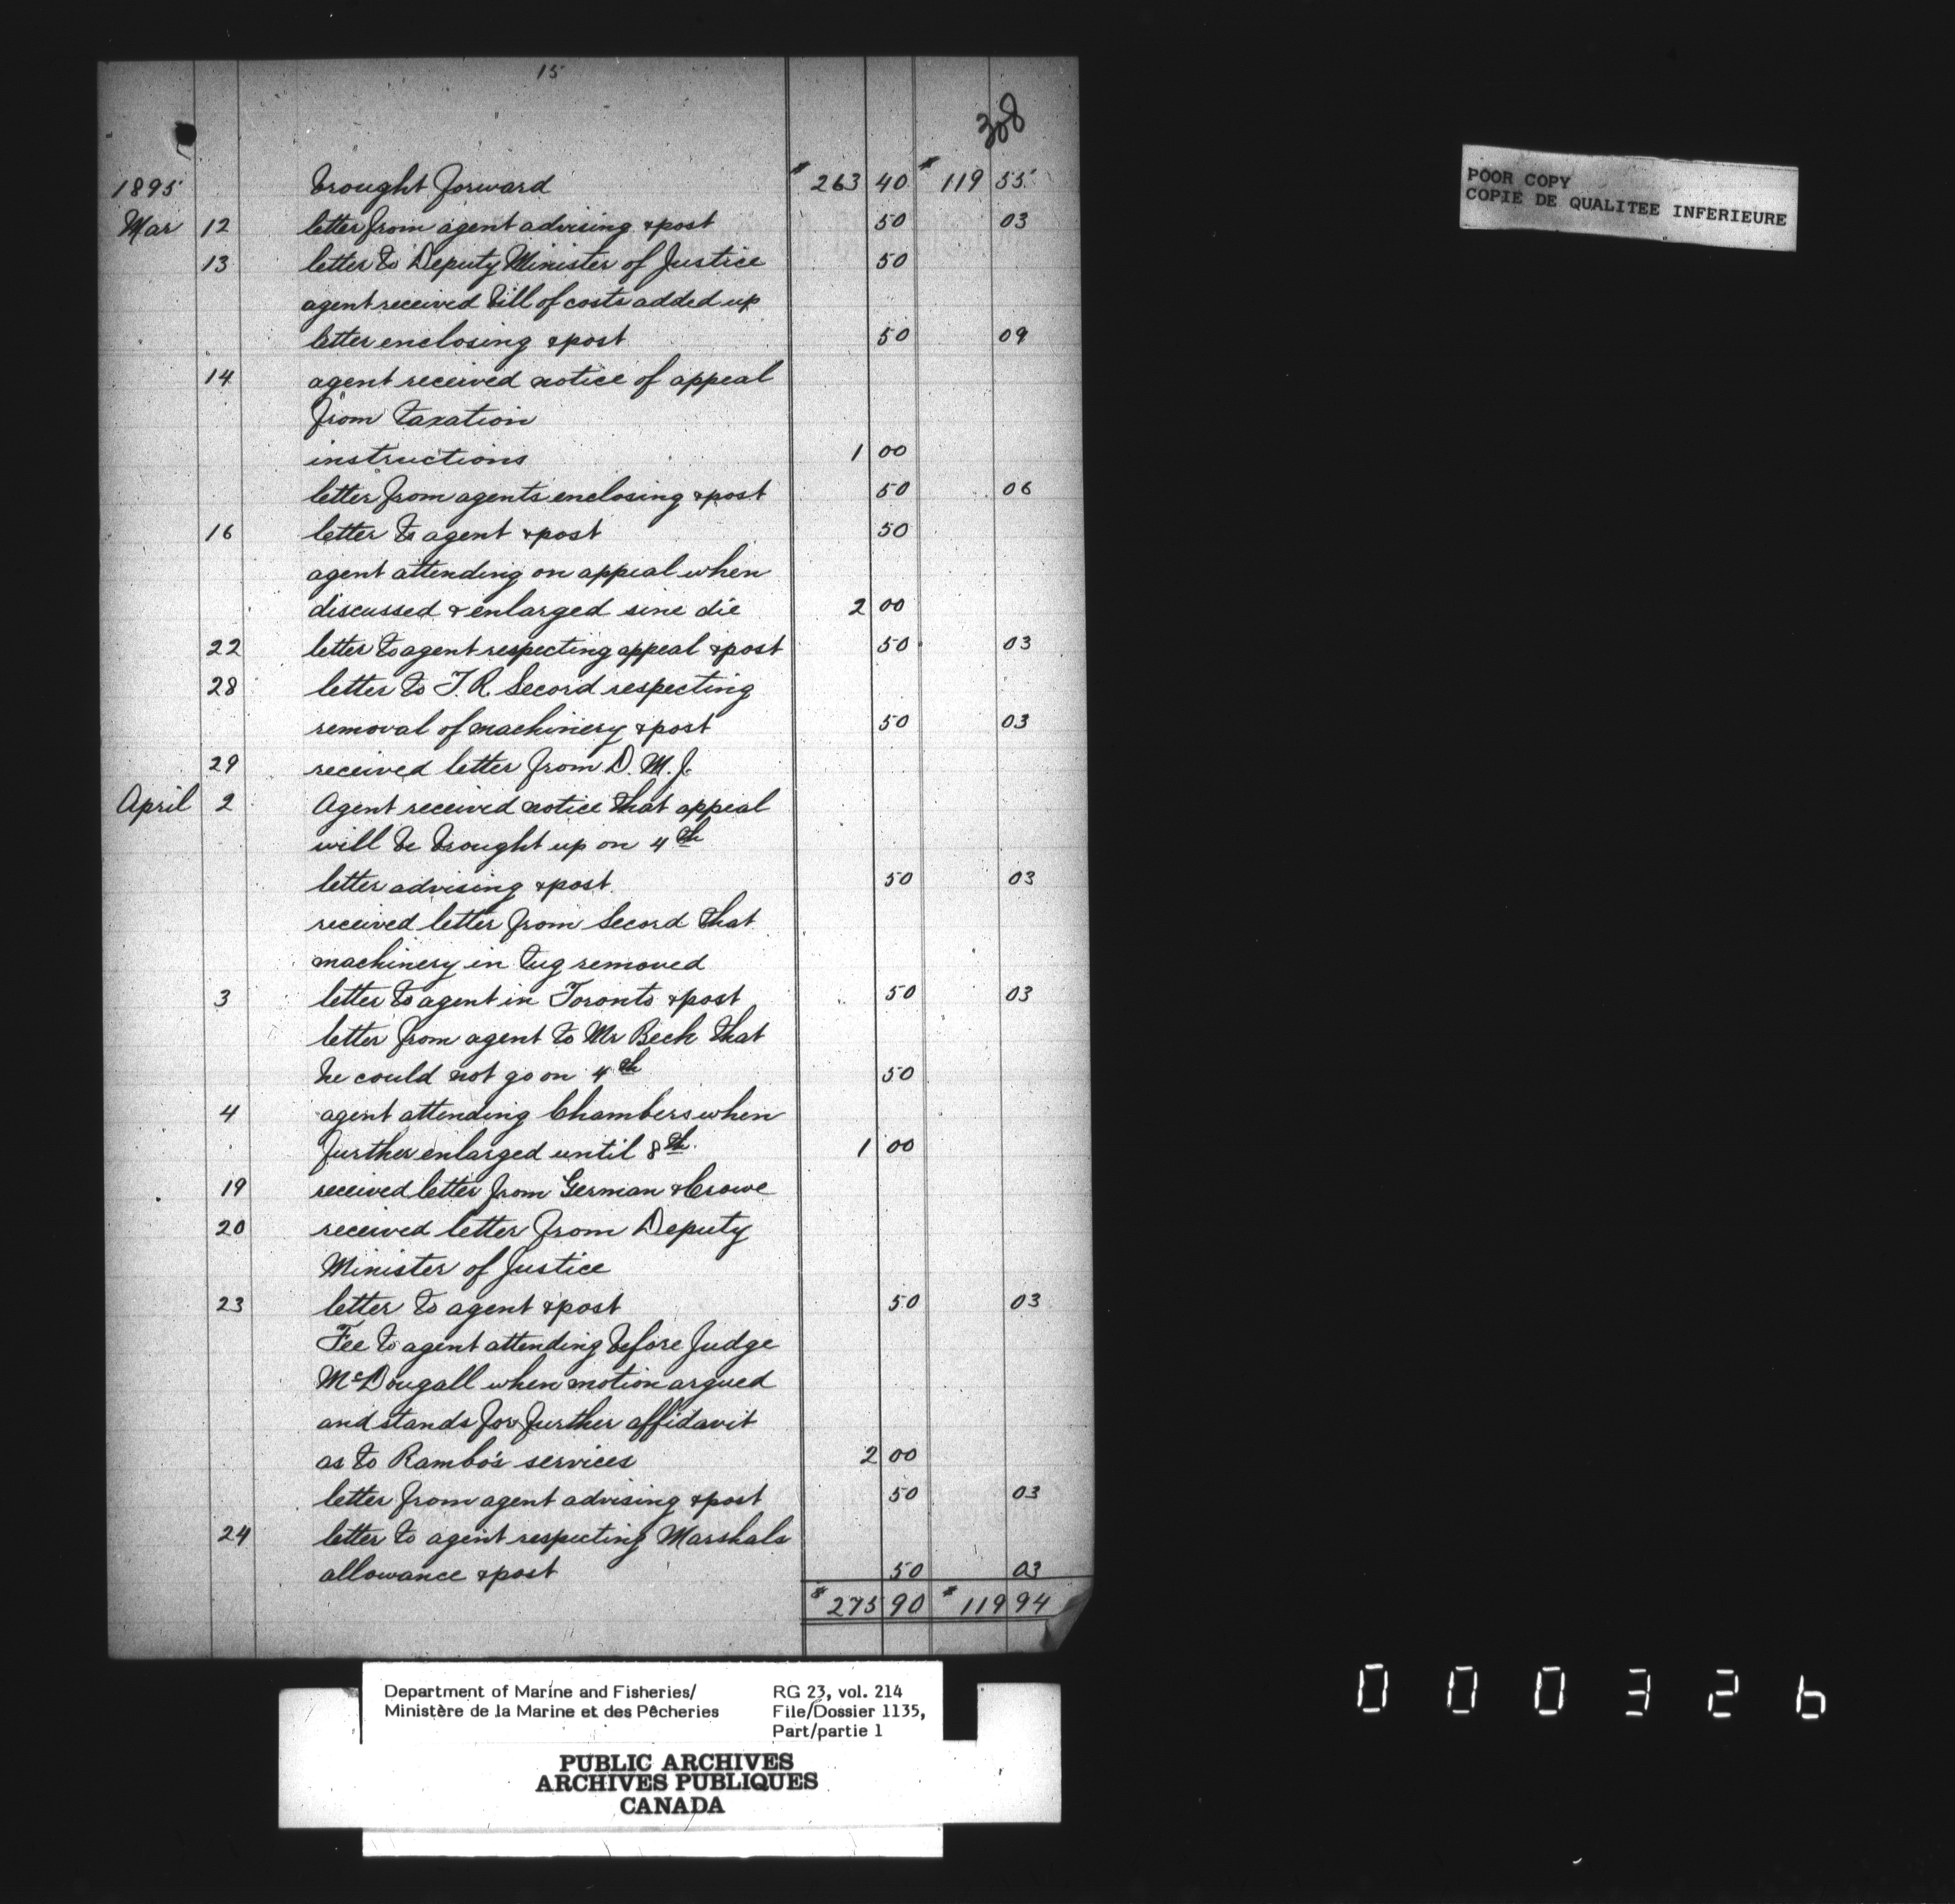 15
308
1895 brought forward $263 40 $119 55
Mar 12 letter from agent advising & post 50 03
13 letter to Deputy Minister of Justice 50
agent received bill of costs added up
letter enclosing & post 50 09
14 agent received notice of appeal
from taxation
instructions 1 00
letter from agents enclosing & post 50 06
16 letter to agent & post 50
agent attending on appeal when
discussed & enlarged sine die 2 00
22 letter to agent respecting appeal & post 50 03
28 letter to T. R. Secord respecting
removal of machinery & post 50 03
29 received letter from D. M. J.
April 2 Agent received notice that appeal
will be brought up on 4th
letter advising & post 50 03
received letter from Secord that
machinery in tug removed
3 letter to agent in Toronto & post 50 03
letter from agent to Mr Beck that
he could not go on 4th 50
4 agent attending Chambers when
further enlarged until 8th 1 00
19 received letter from German & Crowe
20 received letter from Deputy
Minister of Justice
23 letter to agent & post 50 03
Fee to agent attending before Judge
McDougall when motion argued
and stands for further affidavit
as to Rambo's services 2 00
letter from agent advising & post 50 03
24 letter to agent respecting Marshals
allowance & post 50 03
$275 90 $119 94
POOR COPY
COPIE DE QUALITEE INFERIEURE
Department of Marine and Fisheries/
Ministère de la Marine et des Pêcheries
RG 23, vol. 214
File/Dossier 1135,
Part/partie 1
PUBLIC ARCHIVES
ARCHIVES PUBLIQUES
CANADA
000326